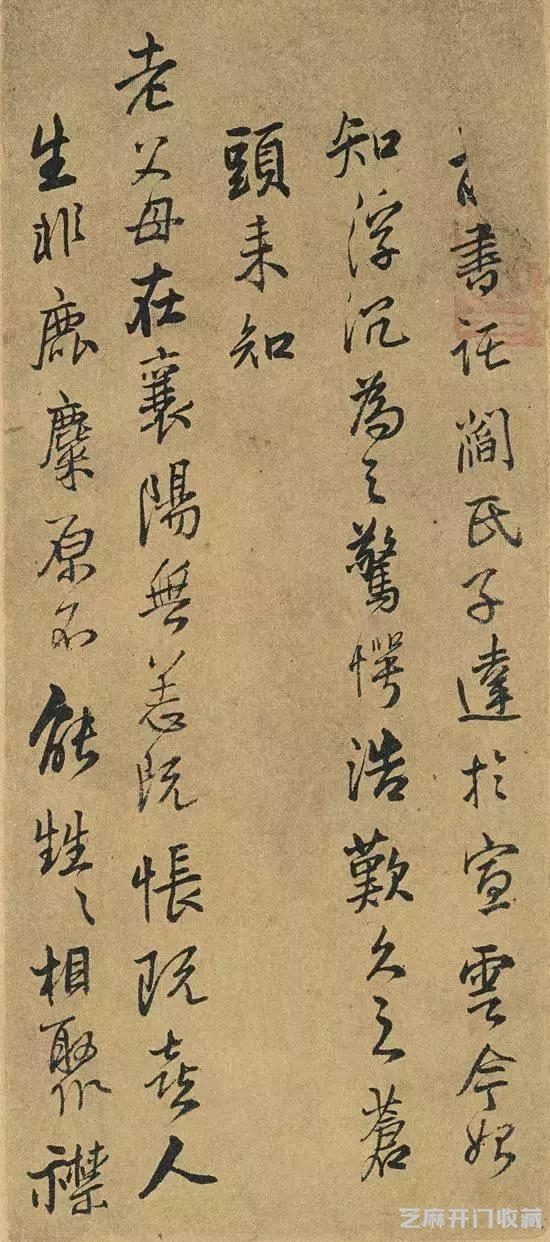 書託閻氏子達於宣雲今始
知浮沉為之驚愕浩歎久之蒼
頭来知
老父母在襄陽無恙既悵既喜人
生非鹿麋原不能甡々相聚襟
芝麻开门收藏